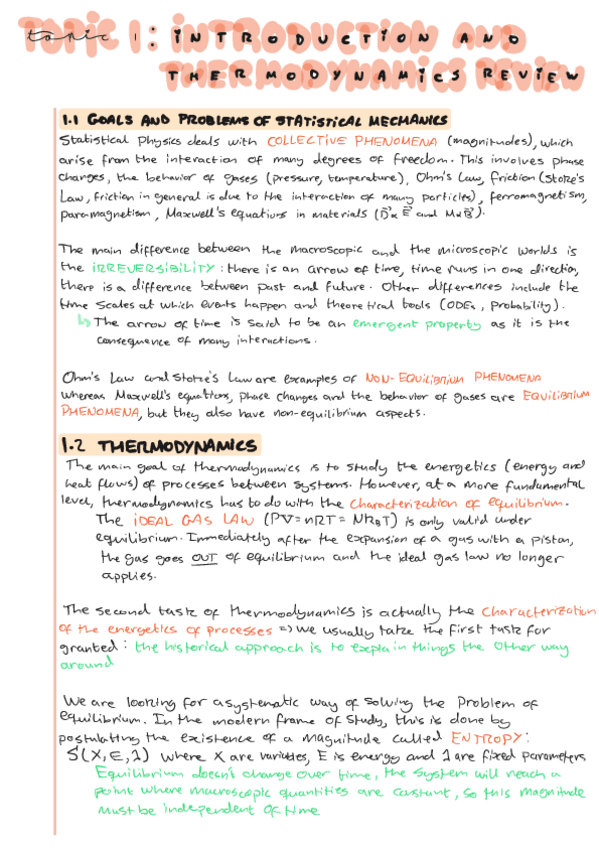 topic TOPIC 1: INTRODUCTION AND
THERMODYNAMICS REVIEW
1.1 GOALS AND PROBLEMS OF STATISTICAL MECHANICS
Statistical Physics deals with COLLECTIVE PHENOMENA (magnitudes), which
arise from the interaction of many degrees of freedom. This involves phase
changes, the behavior of gases (pressure, temperature), Ohm's Law, friction (Stoke's
Law, friction in general is due to the interaction of many particles), ferromagnetism,
paramagnetism, Maxwell's equations in materials (D⃗ ∝ E⃗ and M∝B⃗).
The main difference between the macroscopic and the microscopic worlds is
the IRREVERSIBILITY: there is an arrow of time, time runs in one direction,
there is a difference between past and future. Other differences include the
time scales at which events happen and theoretical tools (ODEs, probability).
↳ The arrow of time is said to be an emergent property as it is the
consequence of many interactions.
Ohm's Law and Stoke's Law are examples of NON-EQUILIBRIUM PHENOMENA
whereas Maxwell's equations, phase changes and the behavior of gases are EQUILIBRIUM
PHENOMENA, but they also have non-equilibrium aspects.
1.2 THERMODYNAMICS
The main goal of thermodynamics is to study the energetics (energy and
heat flows) of processes between systems. However, at a more fundamental
level, thermodynamics has to do with the characterization of equilibrium.
The IDEAL GAS LAW (PV=nRT = NkBT) is only valid under
equilibrium. Immediately after the expansion of a gas with a piston,
the gas goes OUT of equilibrium and the ideal gas law no longer
applies.
The second task of thermodynamics is actually the characterization
of the energetics of processes => we usually take the first task for
granted: the historical approach is to explain things the other way
around
We are looking for a systematic way of solving the problem of
equilibrium. In the modern frame of study, this is done by
postulating the existence of a magnitude called ENTROPY:
S(X,E,λ) where X are variables, E is energy and λ are fixed parameters
Equilibrium doesn't change over time, the system will reach a
point where macroscopic quantities are constant, so this magnitude
must be independent of time